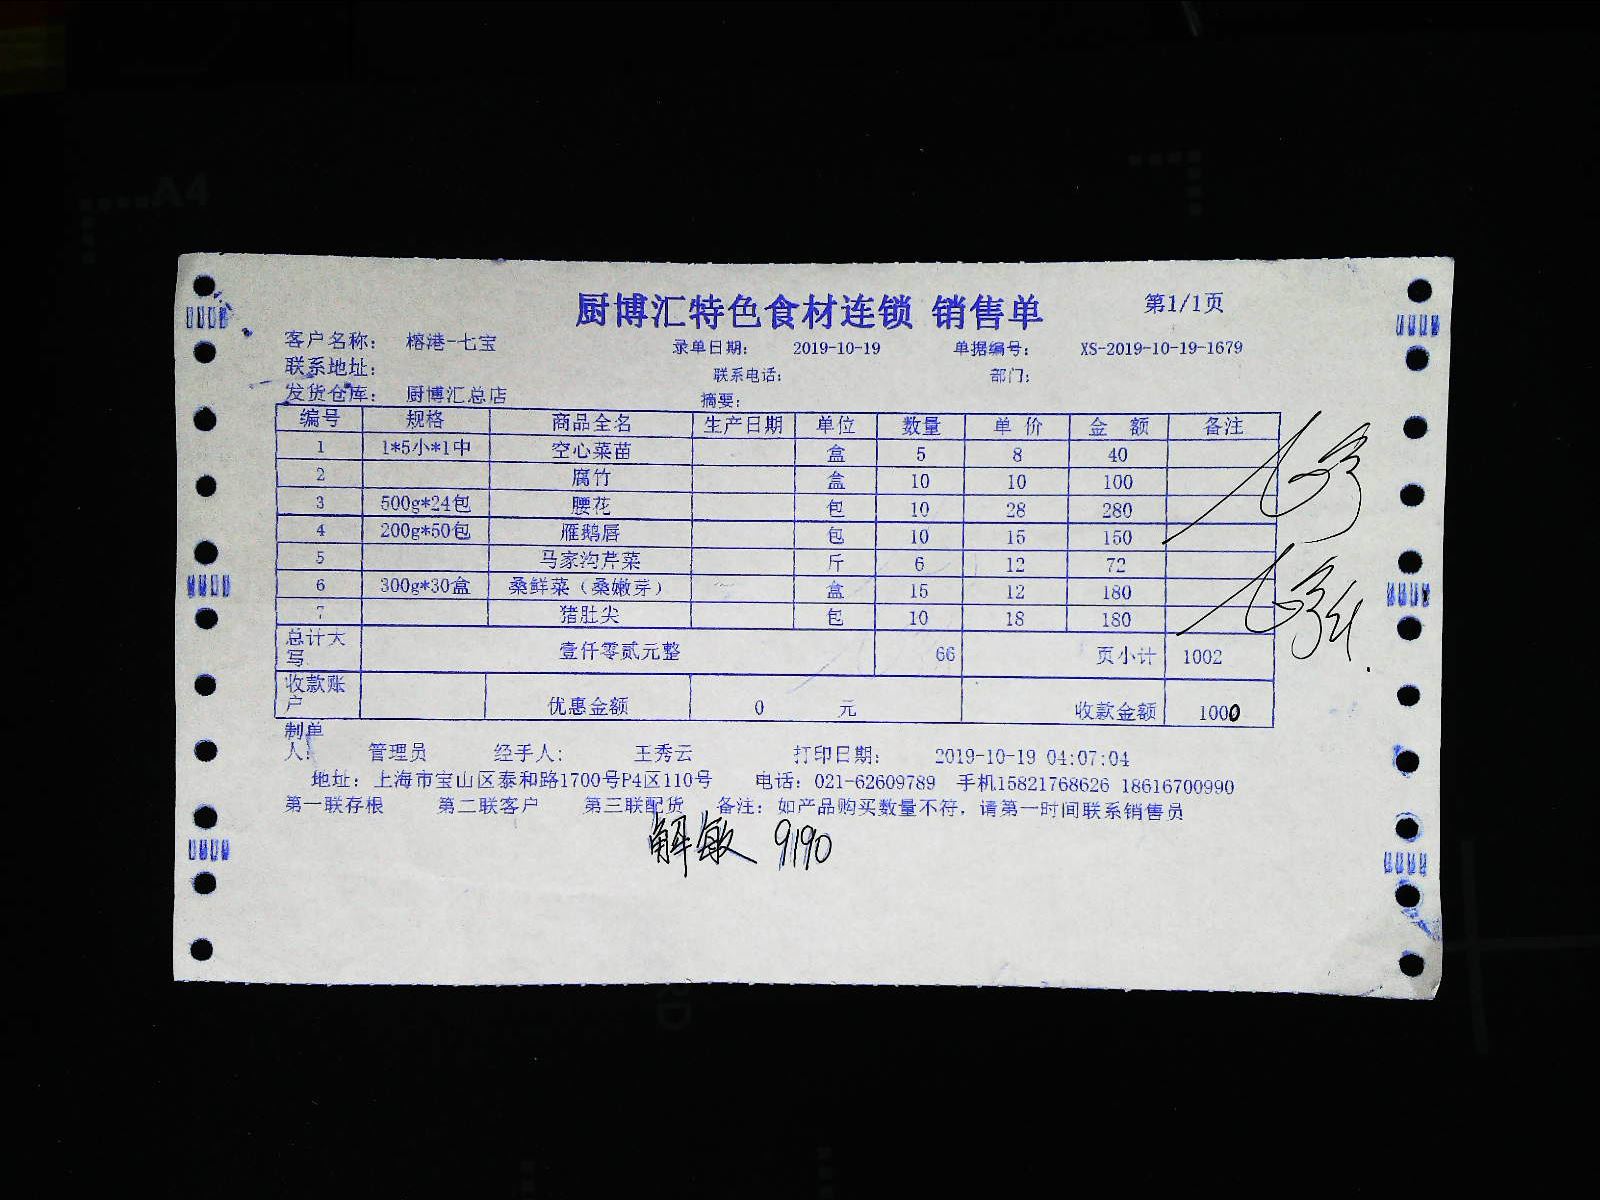 厨博汇特色食材连锁 销售单 第1/1页
客户名称： 榕港-七宝 录单日期： 2019-10-19 单据编号： XS-2019-10-19-1679
联系地址： 联系电话： 部门：
发货仓库： 厨博汇总店 摘要：
编号 规格 商品全名 生产日期 单位 数量 单 价 金 额 备注
1 1*5小*1中 空心菜苗 盒 5 8 40
2 腐竹 盒 10 10 100
3 500g*24包 腰花 包 10 28 280
4 200g*50包 雁鹅唇 包 10 15 150
5 马家沟芹菜 斤 6 12 72
6 300g*30盒 桑鲜菜（桑嫩芽） 盒 15 12 180
7 猪肚尖 包 10 18 180
总计大写 壹仟零贰元整 66 页小计 1002
收款账户 优惠金额 0 元 收款金额 1000
制单人： 管理员 经手人： 王秀云 打印日期： 2019-10-19 04:07:04
地址：上海市宝山区泰和路1700号P4区110号 电话：021-62609789 手机15821768626 18616700990
第一联存根 第二联客户 第三联配货 备注：如产品购买数量不符，请第一时间联系销售员
解敏 9190
A4